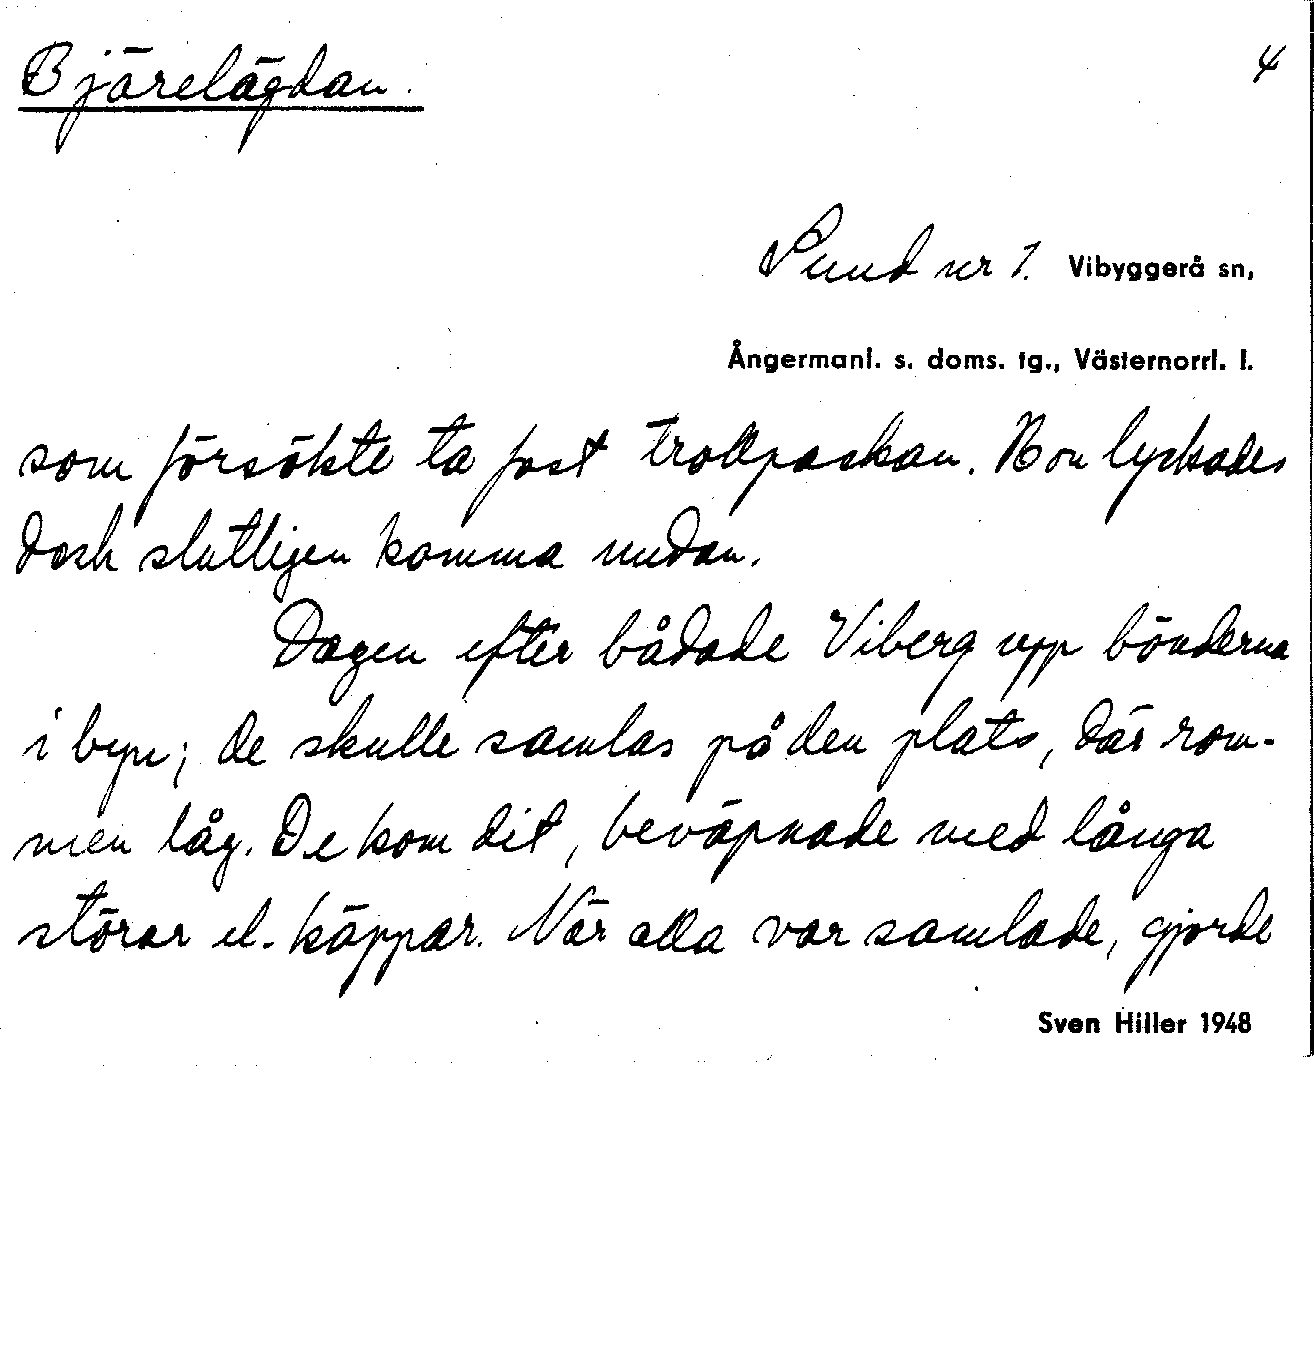 Bjärelägdan. 4
Sund nr 1. Vibyggerå sn,
Ångermanl. s. doms. tg., Västernorrl. l.
som försökte ta fast trollpackan. Hon lyckades
dock slutligen komma undan.
Dagen efter bådade Viberg upp bönderna
i byn; de skulle samlas på den plats, där rom-
men låg. De kom dit, beväpnade med långa
störar el. käppar. När alla var samlade, gjorde
Sven Hiller 1948